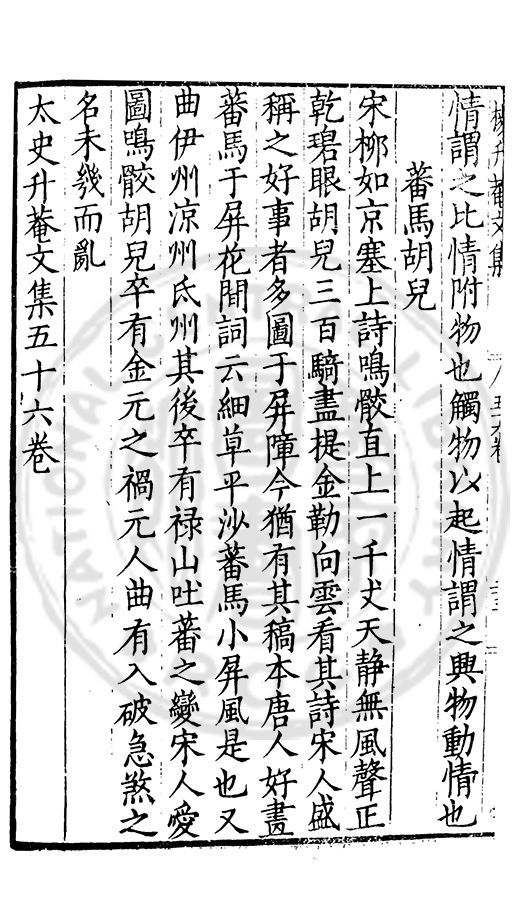 楊升菴文集
情謂之比情附物也觸物以起情謂之興物動情也
蕃馬胡兒
宋栁如京塞上詩鳴骹直上一千丈天静無風聲正
乾碧眼胡兒三百騎盡提金勒向雲看其詩宋人盛
稱之好事者多圖于屏障今猶有其稿本唐人好畫
蕃馬于屏花間詞云細草平沙蕃馬小屏風是也又
曲伊州凉州氐州其後卒有禄山吐蕃之變宋人愛
圖鳴骹胡兒卒有金元之禍元人曲有入破急煞之
名未㡬而亂
太史升菴文集五十六卷